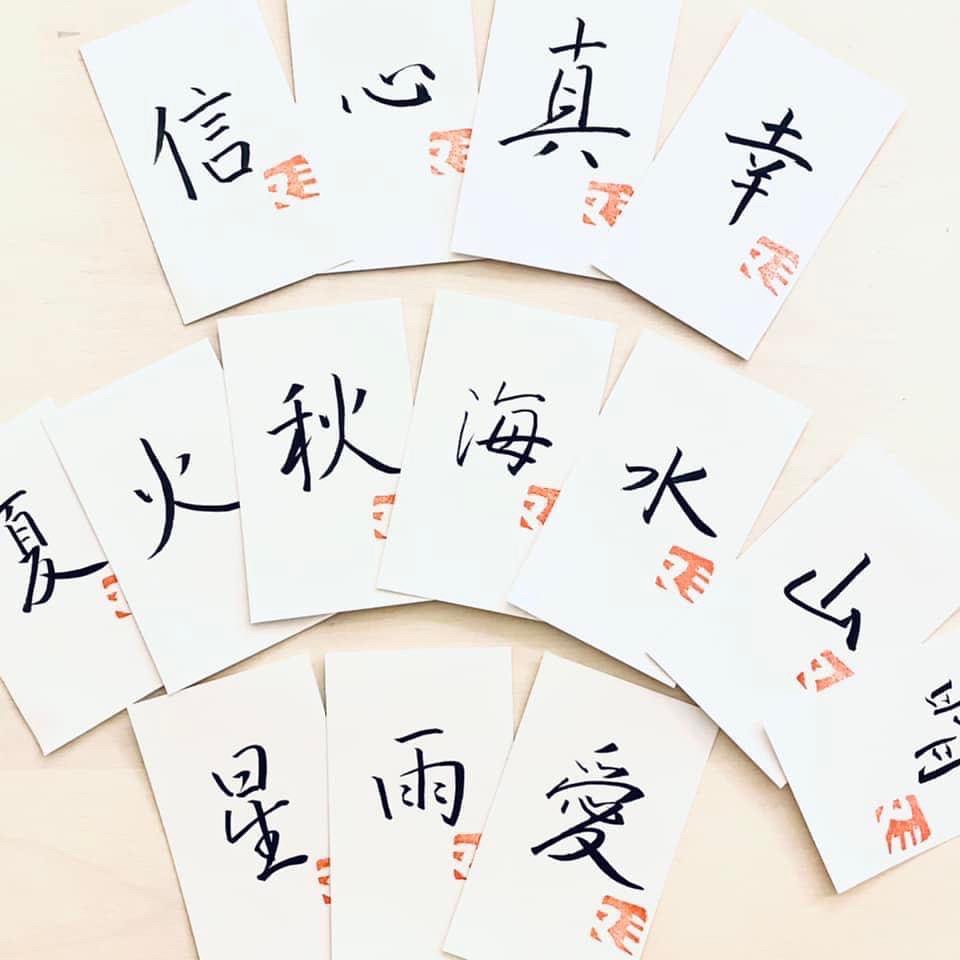 信
心
真
幸
夏
火
秋
海
水
山
星
雨
愛